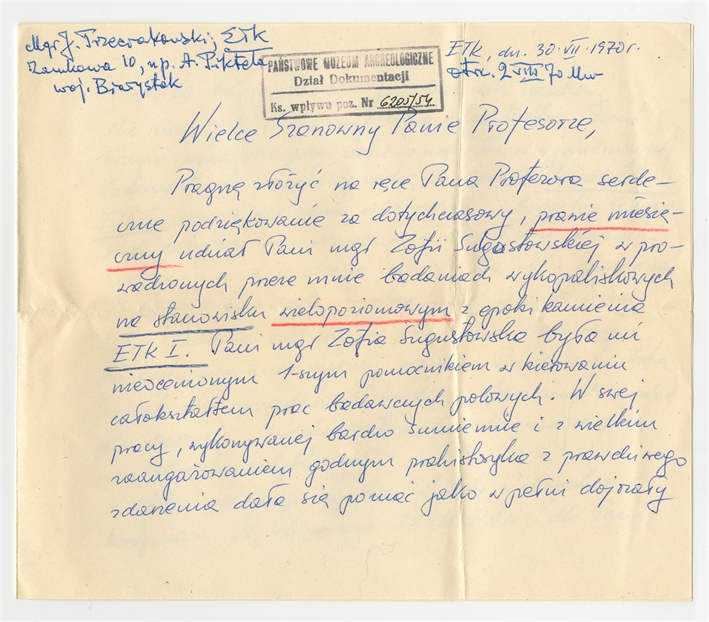 Mgr J. Trzeciakowski, Ełk
Zamkowa 10, u p. A. Piktela
woj. Białystok
PAŃSTWOWE MUZEUM ARCHEOLOGICZNE
Dział Dokumentacji
Ks. wpływu poz. Nr 6205/54
Ełk, dn. 30.VII.1970r.
otrz. 2 VIII 70
Wielce Szanowny Panie Profesorze,
Pragnę złożyć na ręce Pana Profesora serde-
czne podziękowanie za dotychczasowy, prawie miesię-
czny udział Pani mgr Zofii Sulgostowskiej w pro-
wadzonych przeze mnie badaniach wykopaliskowych
na stanowisku wielopoziomowym z epoki kamienia
Ełk I. Pani mgr Zofia Sugustowska była mi
nieocenionym 1-szym pomocnikiem w kierowaniu
całokształtem prac badawczych polowych. W swej
pracy, wykonywanej bardzo sumiennie i z wielkim
zaangażowaniem godnym prahistoryka z prawdziwego
zdarzenia dała się poznać jako w pełni dojrzały